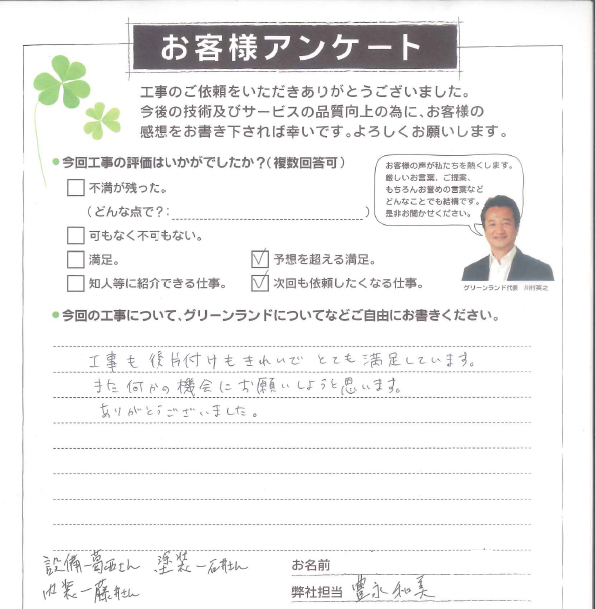 お客様アンケート
工事のご依頼をいただきありがとうございました。
今後の技術及びサービスの品質向上の為に、お客様の
感想をお書き下されば幸いです。よろしくお願いします。
●今回工事の評価はいかがでしたか？（複数回答可）
不満が残った。
（どんな点で？：）
可もなく不可もない。
満足。
予想を超える満足。
知人等に紹介できる仕事。
次回も依頼したくなる仕事。
お客様の声が私たちを熱くします。
厳しいお言葉、ご提案、
もちろんお誉めの言葉など
どんなことでも結構です。
是非お聞かせください。
グリーンランド代表 川村英之
●今回の工事について、グリーンランドについてなどご自由にお書きください。
工事も後片付けもきれいでとても満足しています。
また何かの機会にお願いしようと思います。
ありがとうございました。
設備―葛西さん 塗装―石井さん
内装―藤井さん
お名前
弊社担当 豊永和美